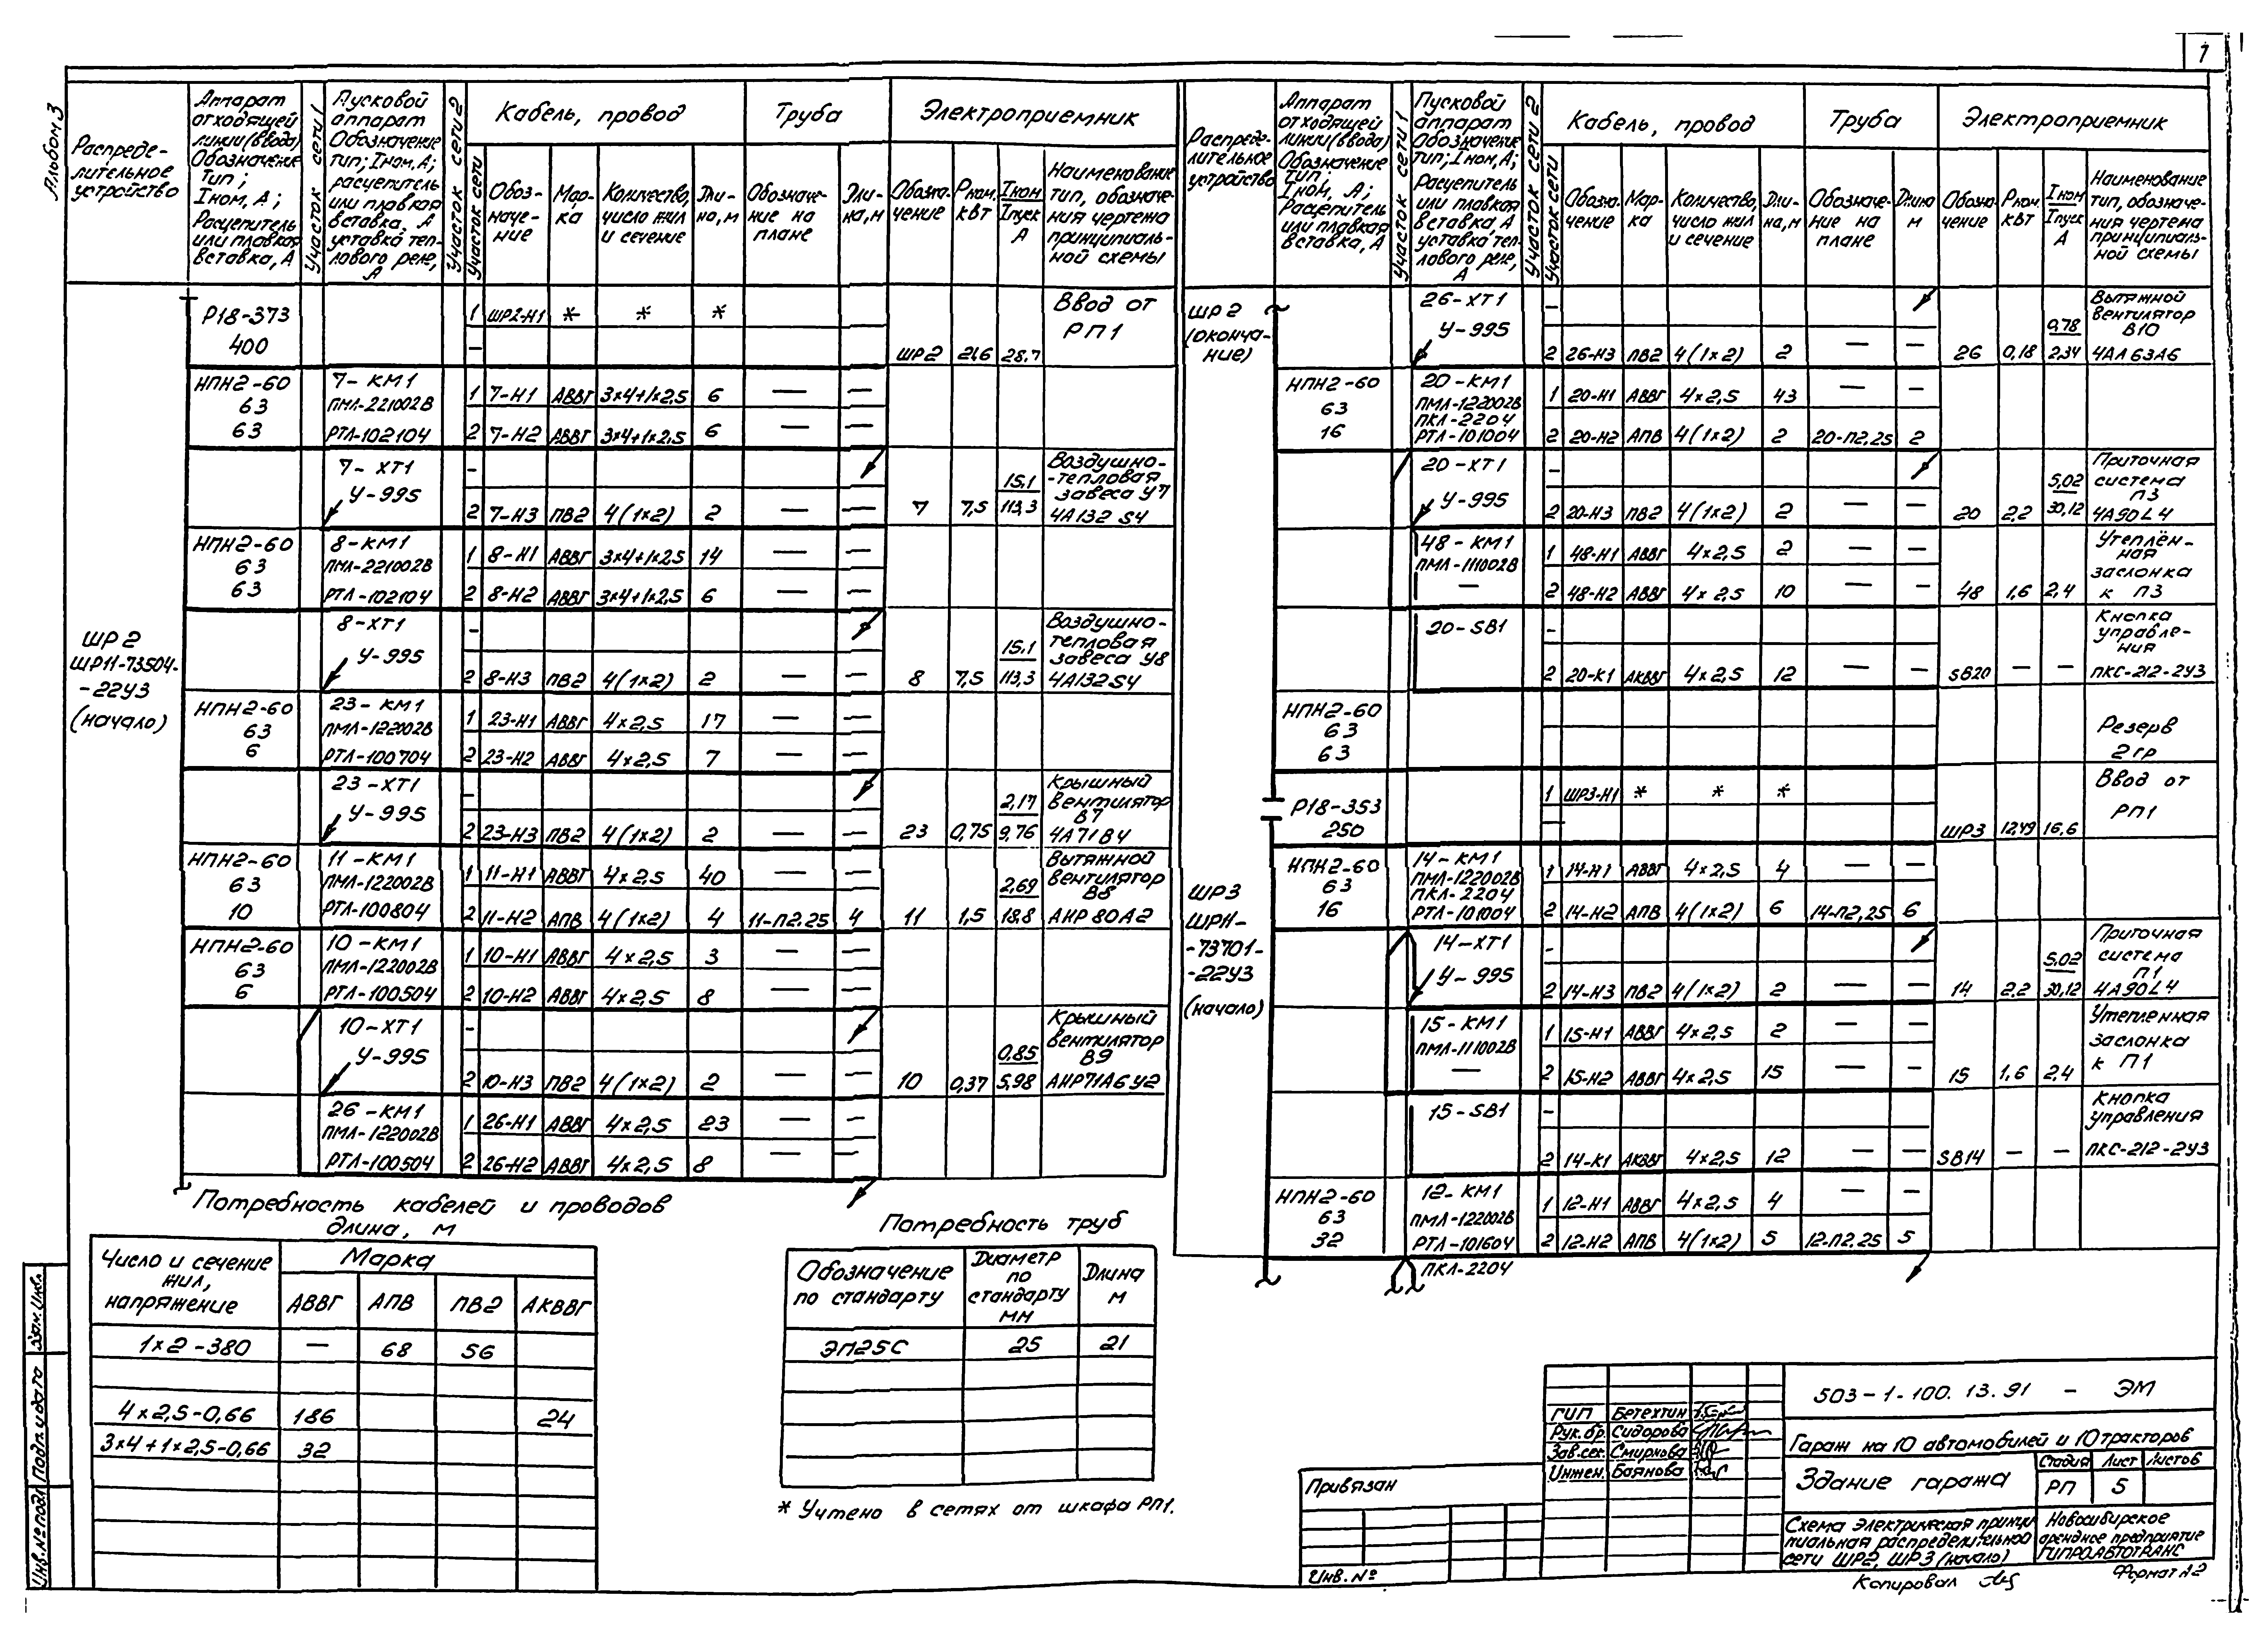 1
Альбом 3
Распреде-
лительное
устройство
Аппарат
отходящей
линии (ввода)
Обозначение
Тип;
Iном, А;
Расцепитель
или плавкая
вставка, А
Участок сети 1
Пусковой
аппарат
Обозначение
тип; Iном, А;
расцепитель
или плавкая
вставка, А
уставка теп-
лового реле,
А
Участок сети 2
Кабель, провод
Участок сети
Обоз-
наче-
ние
Мар-
ка
Количество,
число жил
и сечение
Дли-
на, м
Труба
Обозначе-
ние на
плане
Дли-
на, м
Электроприемник
Обозна-
чение
Рном.
кВт
Iном
Iпуск
А
Наименование
тип, обозначе-
ния чертежа
принципиаль-
ной схемы
ШР2
ШР11-73504-
-22У3
(начало)
Р18-373
400
1 ШР2-Н1 * * *
—
ШР2 21,6 28,7
Ввод от
РП1
НПН2-60
63
63
7-КМ1
ПМЛ-221002В
РТЛ-102104
1 7-Н1 АВВГ 3×4+1×2,5 6 — —
2 7-Н2 АВВГ 3×4+1×2,5 6 — —
7-ХТ1
У-995
—
2 7-Н3 ПВ2 4(1×2) 2 — —
7 7,5 15,1
113,3
Воздушно-
-тепловая
завеса У7
4А132 S4
НПН2-60
63
63
8-КМ1
ПМЛ-221002В
РТЛ-102104
1 8-Н1 АВВГ 3×4+1×2,5 14 — —
2 8-Н2 АВВГ 3×4+1×2,5 6 — —
8-ХТ1
У-995
—
2 8-Н3 ПВ2 4(1×2) 2 — —
8 7,5 15,1
113,3
Воздушно-
тепловая
завеса У8
4А132S4
НПН2-60
63
6
23-КМ1
ПМЛ-122002В
РТЛ-100704
1 23-Н1 АВВГ 4×2,5 17 — —
2 23-Н2 АВВГ 4×2,5 7 — —
23-ХТ1
У-995
—
2 23-Н3 ПВ2 4(1×2) 2 — —
23 0,75 2,17
9,76
Крышный
вентилятор
В7
4А71В4
НПН2-60
63
10
11-КМ1
ПМЛ-122002В
РТЛ-100804
1 11-Н1 АВВГ 4×2,5 40 — —
2 11-Н2 АПВ 4(1×2) 4 11-П2.25 4
11 1,5 2,69
18,8
Вытяжной
вентилятор
В8
АИР 80А2
НПН2-60
63
6
10-КМ1
ПМЛ-122002В
РТЛ-100504
1 10-Н1 АВВГ 4×2,5 3 — —
2 10-Н2 АВВГ 4×2,5 8 — —
10-ХТ1
У-995
—
2 10-Н3 ПВ2 4(1×2) 2 — —
10 0,37 0,85
5,98
Крышный
вентилятор
В9
АИР71А6У2
26-КМ1
ПМЛ-122002В
РТЛ-100504
1 26-Н1 АВВГ 4×2,5 23 — —
2 26-Н2 АВВГ 4×2,5 8 — —
Распреде-
лительное
устройство
Аппарат
отходящей
линии (ввода)
Обозначение
Тип;
Iном, А;
Расцепитель
или плавкая
вставка, А
Участок сети 1
Пусковой
аппарат
Обозначение
тип; Iном, А;
Расцепитель
или плавкая
вставка, А
уставка теп-
лового реле,
А
Участок сети 2
Кабель, провод
Участок сети
Обозна-
чение
Мар-
ка
Количество,
число жил
и сечение
Дли-
на, м
Труба
Обозначе-
ние на
плане
Длина
м
Электроприемник
Обозна-
чение
Рном.
кВт
Iном
Iпуск
А
Наименование
тип, обозначе-
ния чертежа
принципиаль-
ной схемы
ШР2
(оконча-
ние)
26-ХТ1
У-995
—
2 26-Н3 ПВ2 4(1×2) 2 — —
26 0,18 0,78
2,34
Вытяжной
вентилятор
В10
4АА63А6
НПН2-60
63
16
20-КМ1
ПМЛ-122002В
ПКЛ-2204
РТЛ-101004
1 20-Н1 АВВГ 4×2,5 43 — —
2 20-Н2 АПВ 4(1×2) 2 20-П2,25 2
20-ХТ1
У-995
—
2 20-Н3 ПВ2 4(1×2) 2 — —
20 2,2 5,02
30,12
Приточная
система
П3
4А90L4
48-КМ1
ПМЛ-111002В
—
1 48-Н1 АВВГ 4×2,5 2 — —
2 48-Н2 АВВГ 4×2,5 10 — —
48 1,6 2,4
Утеплён-
ная
заслонка
к П3
20-SB1
—
2 20-К1 АКВВГ 4×2,5 12 — —
SB20 — —
Кнопка
управле-
ния
ПКС-212-2У3
НПН2-60
63
63
Резерв
2гр
ШР3
ШР11-
-73701-
-22У3
(начало)
Р18-353
250
1 ШР3-Н1 * * *
—
ШР3 12,49 16,6
Ввод от
РП1
НПН2-60
63
16
14-КМ1
ПМЛ-122002В
ПКЛ-2204
РТЛ-101004
1 14-Н1 АВВГ 4×2,5 4 — —
2 14-Н2 АПВ 4(1×2) 6 14-П2,25 6
14-ХТ1
У-995
—
2 14-Н3 ПВ2 4(1×2) 2 — —
14 2,2 5,02
30,12
Приточная
система
П1
4А90L4
15-КМ1
ПМЛ-111002В
—
1 15-Н1 АВВГ 4×2,5 2 — —
2 15-Н2 АВВГ 4×2,5 15 — —
15 1,6 2,4
Утепленная
заслонка
к П1
15-SB1
—
2 14-К1 АКВВГ 4×2,5 12 — —
SB14 — —
Кнопка
управления
ПКС-212-2У3
НПН2-60
63
32
12-КМ1
ПМЛ-122002В
РТЛ-101604
ПКЛ-2204
1 12-Н1 АВВГ 4×2,5 4 — —
2 12-Н2 АПВ 4(1×2) 5 12-П2,25 5
Потребность кабелей и проводов
длина, м
Число и сечение
жил,
напряжение
Марка
АВВГ АПВ ПВ2 АКВВГ
1×2-380 — 68 56
4×2,5-0,66 186 24
3×4+1×2,5-0,66 32
Потребность труб
Обозначение
по стандарту
Диаметр
по
стандарту
мм
Длина
м
ЭП25С 25 21
* Учтено в сетях от шкафа РП1.
Привязан
Инв. №
ГИП Бетехтин
Рук.бр. Сидорова
Зав.сек. Смирнова
Инжен. Баянова
503-1-100.13.91 - ЭМ
Гараж на 10 автомобилей и 10 тракторов
Здание гаража
Стадия Лист Листов
РП 5
Схема электрическая принци
пиальная распределительной
сети ШР2, ШР3 (начало)
Новосибирское
арендное предприятие
ГИПРОАВТОТРАНС
Копировал
Формат А2
Взам. Инв.
Подп. и дата
Инв. № подл